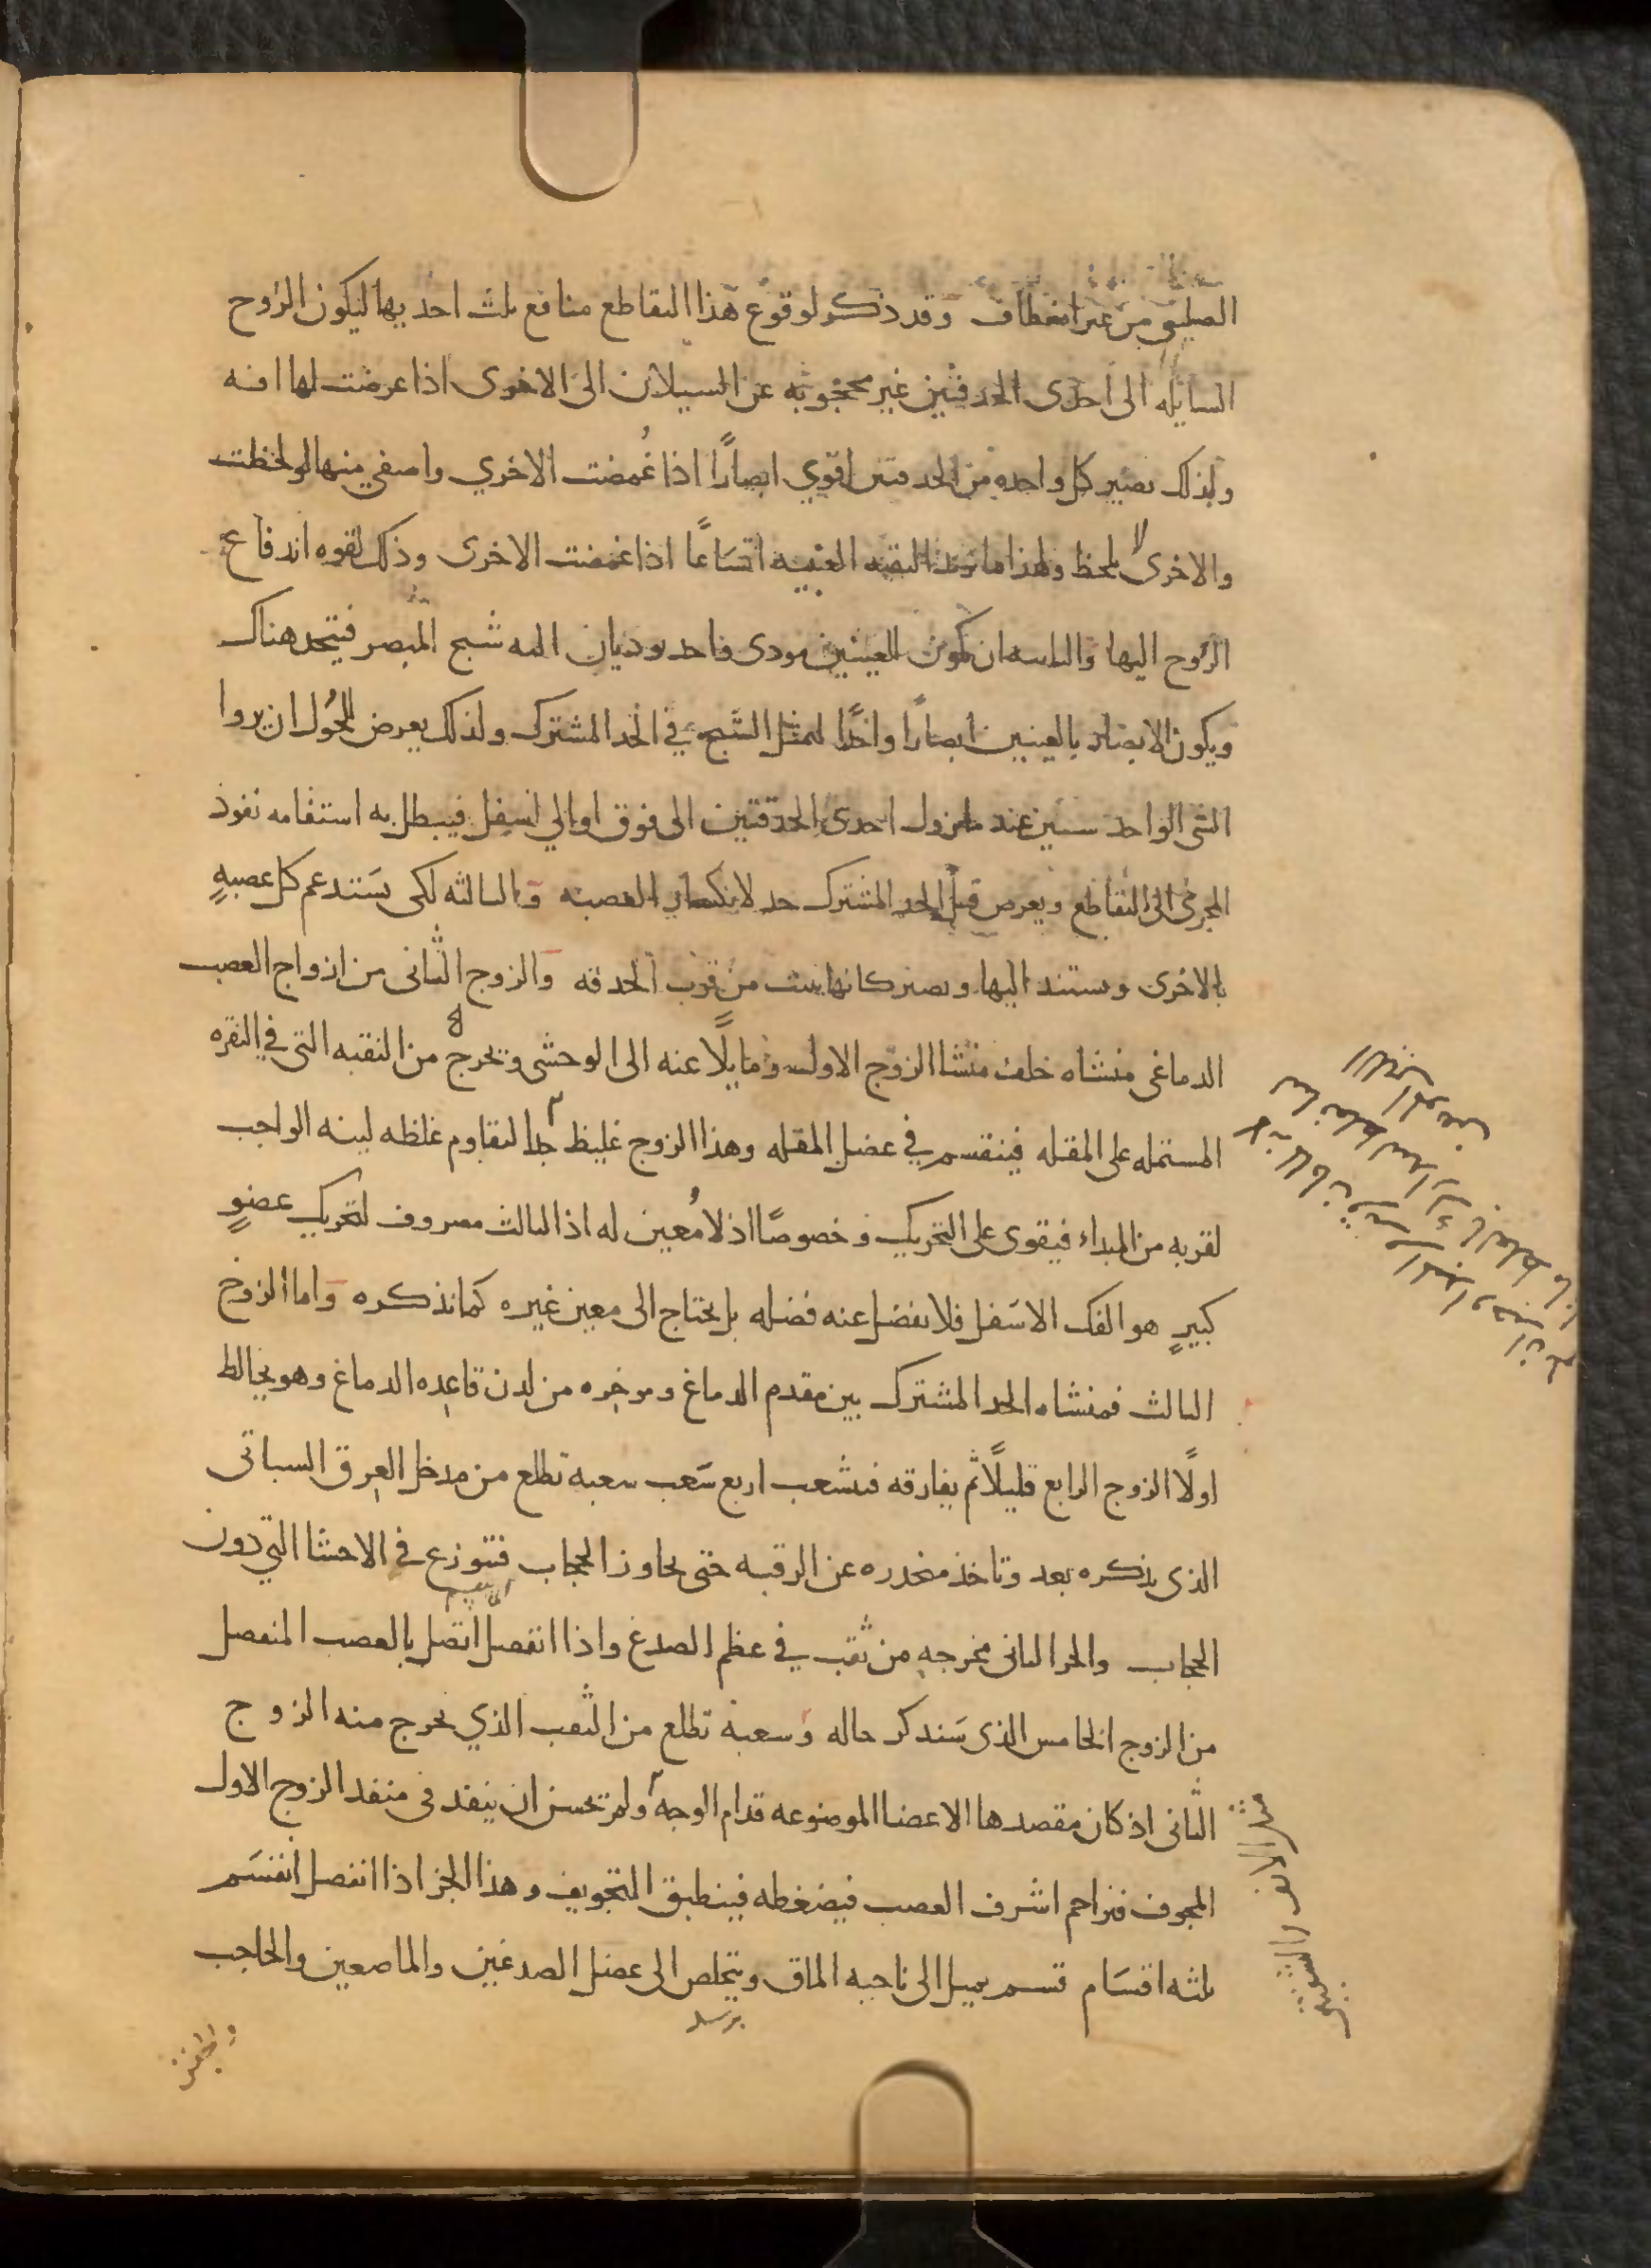 الصليبى من غير انعطاف وقد ذكر لوقوع هذا التقاطع منافع ثلث احديها ليكون الروح
السايله الى احدى الحدقتين غير محجوبه عن السيلان الى الاخرى اذا عرضت لها افه
ولذلك تصير كل واحده من الحدقتين اقوي ابصارًا اذا غُمضت الاخري واصفى منها لو لحظت
والاخرى لا تلحظ ولهذا ما تزيد الثقبه العنبيه اتسَاعًا اذا غمضت الاخرى وذلك لقوه اندفاع
الرّوح اليها والثانيه ان تكون للعينين مودى واحد يوديان اليه شبح المبصر فيتحد هناك
ويكون الابصار بالعينين ابصارًا واحدًا لتمثل الشبح في الحد المشترك ولذلك يعرض للحُول ان يروا
الشى الواحد شيين عند ما تزول احدى الحدقتين الى فوق او الي اسفل فيبطل به استقامه نفوذ
المجرى الى التقاطع ويعرض قبل الحد المشترك حد لانكسار العصبه والثالثه لكى يستدعم كل عصبهٍ
بالاخرى وستند اليها وتصير كانها نبتت من قرب الحدقه والزوج الثانى من ازواج العصب
الدماغى منشاه خلف منشا الزوج الاول ومايلًا عنه الى الوحشى وتخرج من الثقبه التى في النقره
المستمله على المقله فينقسم في عضل المقله وهذا الزوج غليظ جدا لتقاوم غلظه لينه الواجب
لقربه من المبداء فيقوى على التحريك وخصوصًا اذ لا مُعين له اذ الثالث مصروف لتحريك عضوٍ
كبيرٍ هو الفك الاسَفل فلا يفضل عنه فضله بل يحتاج الى معين غيره كما نذكره واما الزوج
الثالث فمنشاه الحد المشترك بين مقدم الدماغ ومرخره من لدن قاعده الدماغ وهو يخالط
اولًا الزوج الرابع قليلًا ثم يفارقه فيشعب اربع شَعب شعبه تطلع من مدخل العرق السباتى
الذى نذكره بعد وتاخذ منحدره عن الرقبه حتى يجاوز الحجاب فتتوزع في الاحشا التي دون
الحجاب والجز الثانى مخرجه من ثقب في عظم الصدغ واذا انفصل اتصل بالعصب المنفصل
من الزوج الخامس الذى سَنذكر حاله وشعبة تطلع من الثقب الذي يخرج منه الزوج
الثانى اذ كان مقصدها الاعضا الموضوعه قدام الوجه ولم تحسن ان ينفد فى منفد الزوج الاول
المجوف فتزاحم اشرف العصب فيضغطه فينطبق التجويف وهذا الجز اذا انفصل انقسَم
ثلثه اقسَام قسم يميل الى ناحيه الماق ويتخلص الى عضل الصدغين والماضعين والحاجب